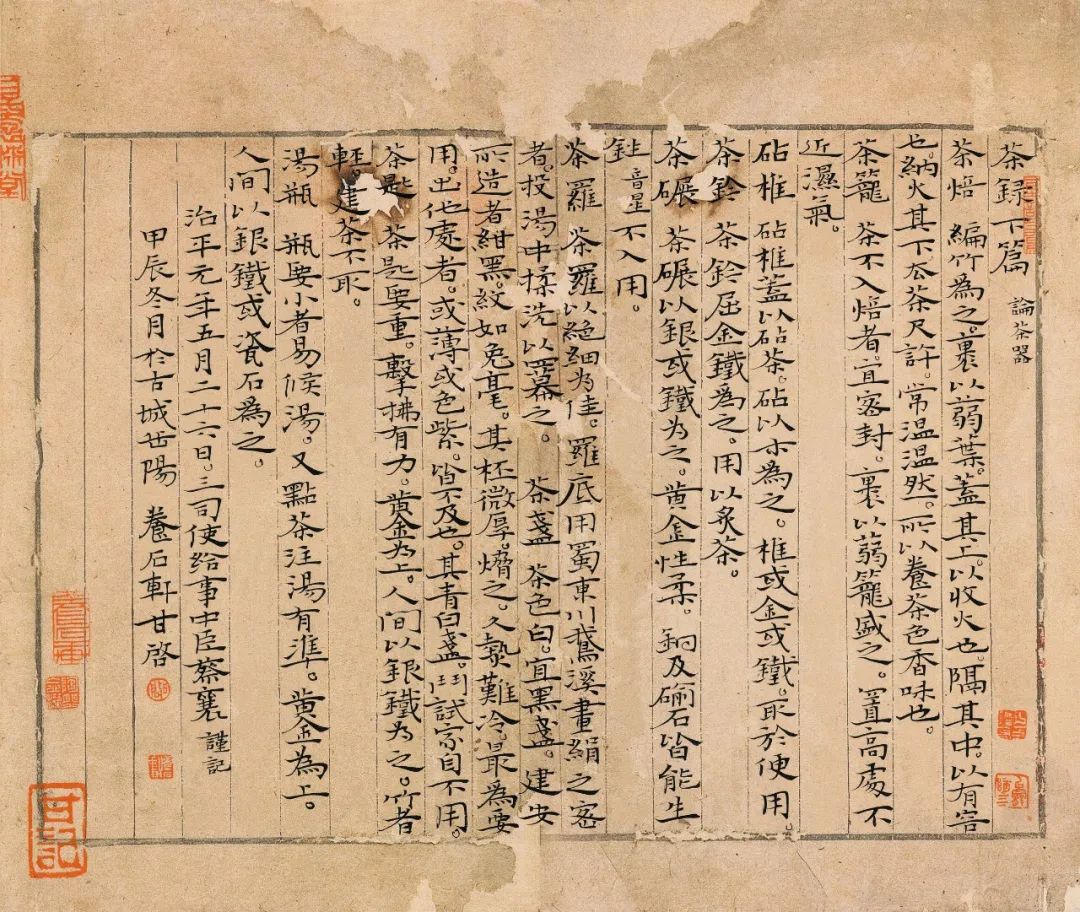 茶録下篇 論茶器
茶焙 編竹為之。裹以蒻葉。蓋其上。以收火也。隔其中。以有容
也。納火其下。去茶尺許。常温温然。所以養茶色香味也。
茶籠 茶不入焙者。宜密封。裹以蒻籠盛之。置高處不
近濕氣。
砧椎 砧椎蓋以砧茶。砧以木為之。椎或金或鐵。取於便用
茶鈐 茶鈐屈金鐵為之。用以炙茶。
茶碾 茶碾以銀或鐵為之。黄金性柔。銅及碖石皆能生
鉎音星不入用。
茶羅 茶羅以絶細為佳。羅底用蜀東川鵝溪畫絹之密
者。投湯中揉洗以羃之。 茶盞 茶色白。宜黑盞。建安
所造者紺黑。紋如兔毫。其杯微厚。熁之。久熱難冷。最為要
用。出他處者。或薄或色紫。皆不及也。其青白盞。鬥試家自不用。
茶匙 茶匙要重。擊拂有力。黄金為上。人間以銀鐵為之。竹者
輕。建茶不取。
湯瓶 瓶要小者易候湯。又點茶注湯有準。黄金為上。
人間以銀鐵或瓷石為之。
治平元年五月二十六日。三司使給事中臣蔡襄 謹記
甲辰冬月於古城廿陽 養石軒甘啓
甘記